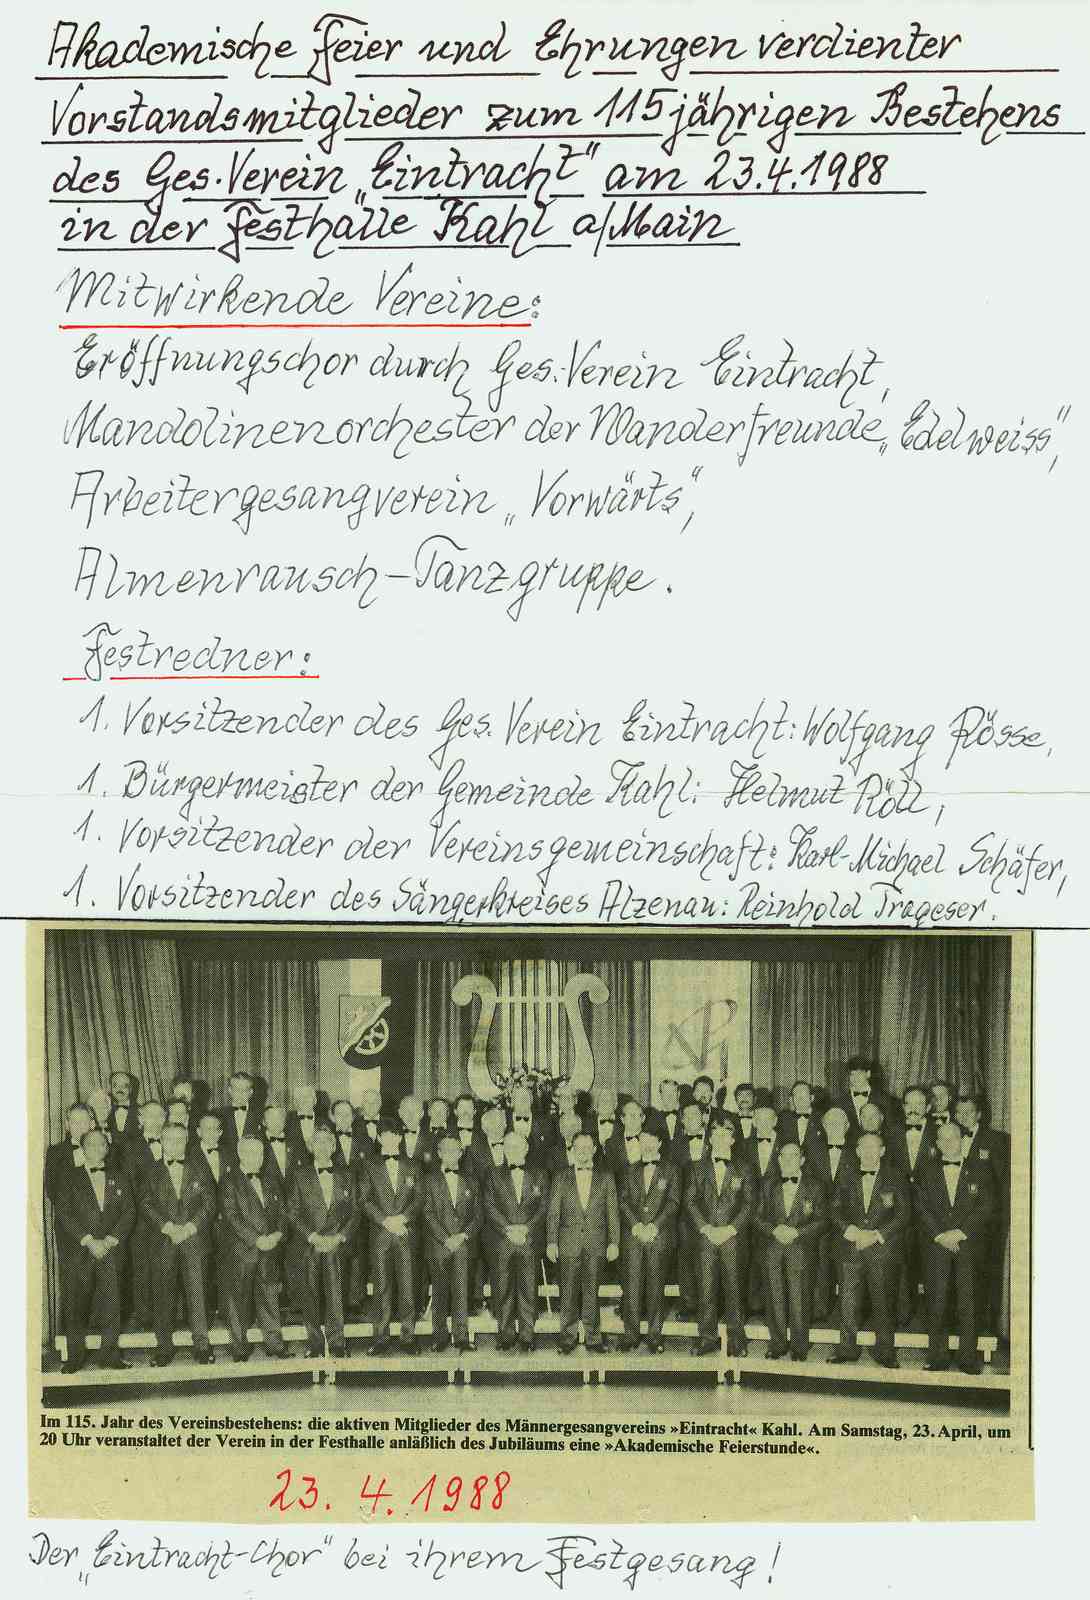 Akademische Feier und Ehrungen verdienter
Vorstandsmitglieder zum 115jährigen Bestehens
des Ges. Verein „Eintracht" am 23.4.1988
in der Festhalle Kahl a/Main
Mitwirkende Vereine:
Eröffnungschor durch Ges. Verein Eintracht,
Mandolinenorchester der Wanderfreunde „Edelweiss",
Arbeitergesangverein „Vorwärts",
Almenrausch-Tanzgruppe.
Festredner:
1. Vorsitzender des Ges. Verein Eintracht: Wolfgang Rösse,
1. Bürgermeister der Gemeinde Kahl: Helmut Röll,
1. Vorsitzender der Vereinsgemeinschaft: Karl-Michael Schäfer,
1. Vorsitzender des Sängerkreises Alzenau: Reinhold Trageser.
Im 115. Jahr des Vereinsbestehens: die aktiven Mitglieder des Männergesangvereins »Eintracht« Kahl. Am Samstag, 23. April, um
20 Uhr veranstaltet der Verein in der Festhalle anläßlich des Jubiläums eine »Akademische Feierstunde«.
23. 4. 1988
Der „Eintracht-Chor" bei ihrem Festgesang!